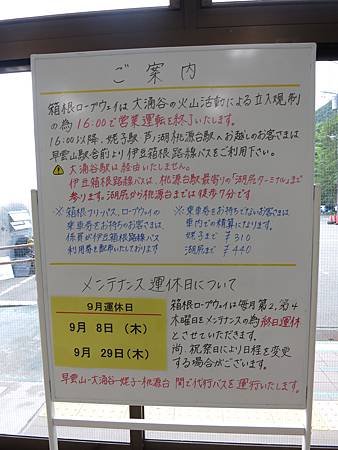 ご案内
箱根ロープウェイは大涌谷の火山活動による立入規制
の為16:00で営業運転を終了いたします。
16:00以降、姥子駅 芦ノ湖 桃源台駅へお越しのお客さまは
早雲山駅舎前より伊豆箱根路線バスをご利用下さい。
大涌谷駅は経由いたしません。
伊豆箱根路線バスは、桃源台駅最寄りの「湖尻ターミナル」まで
参ります。湖尻から桃源台までは徒歩7分です。
※箱根フリーパス、ロープウェイの
乗車券をお持ちのお客さまは、
係員が伊豆箱根路線バス
利用券を配布いたしております
※乗車券をお持ちでないお客さまは
車内での精算になります。
姥子まで ¥310
湖尻まで ¥440
メンテナンス運休日について
9月運休日
9月 8日(木)
9月 29日(木)
箱根ロープウェイは毎月第2,第4
木曜日をメンテナンスの為終日運休
とさせていただきます。
尚、祝祭日により日程を変更
する場合がございます。
早雲山-大涌谷-姥子-桃源台 間で代行バスを運行いたします。